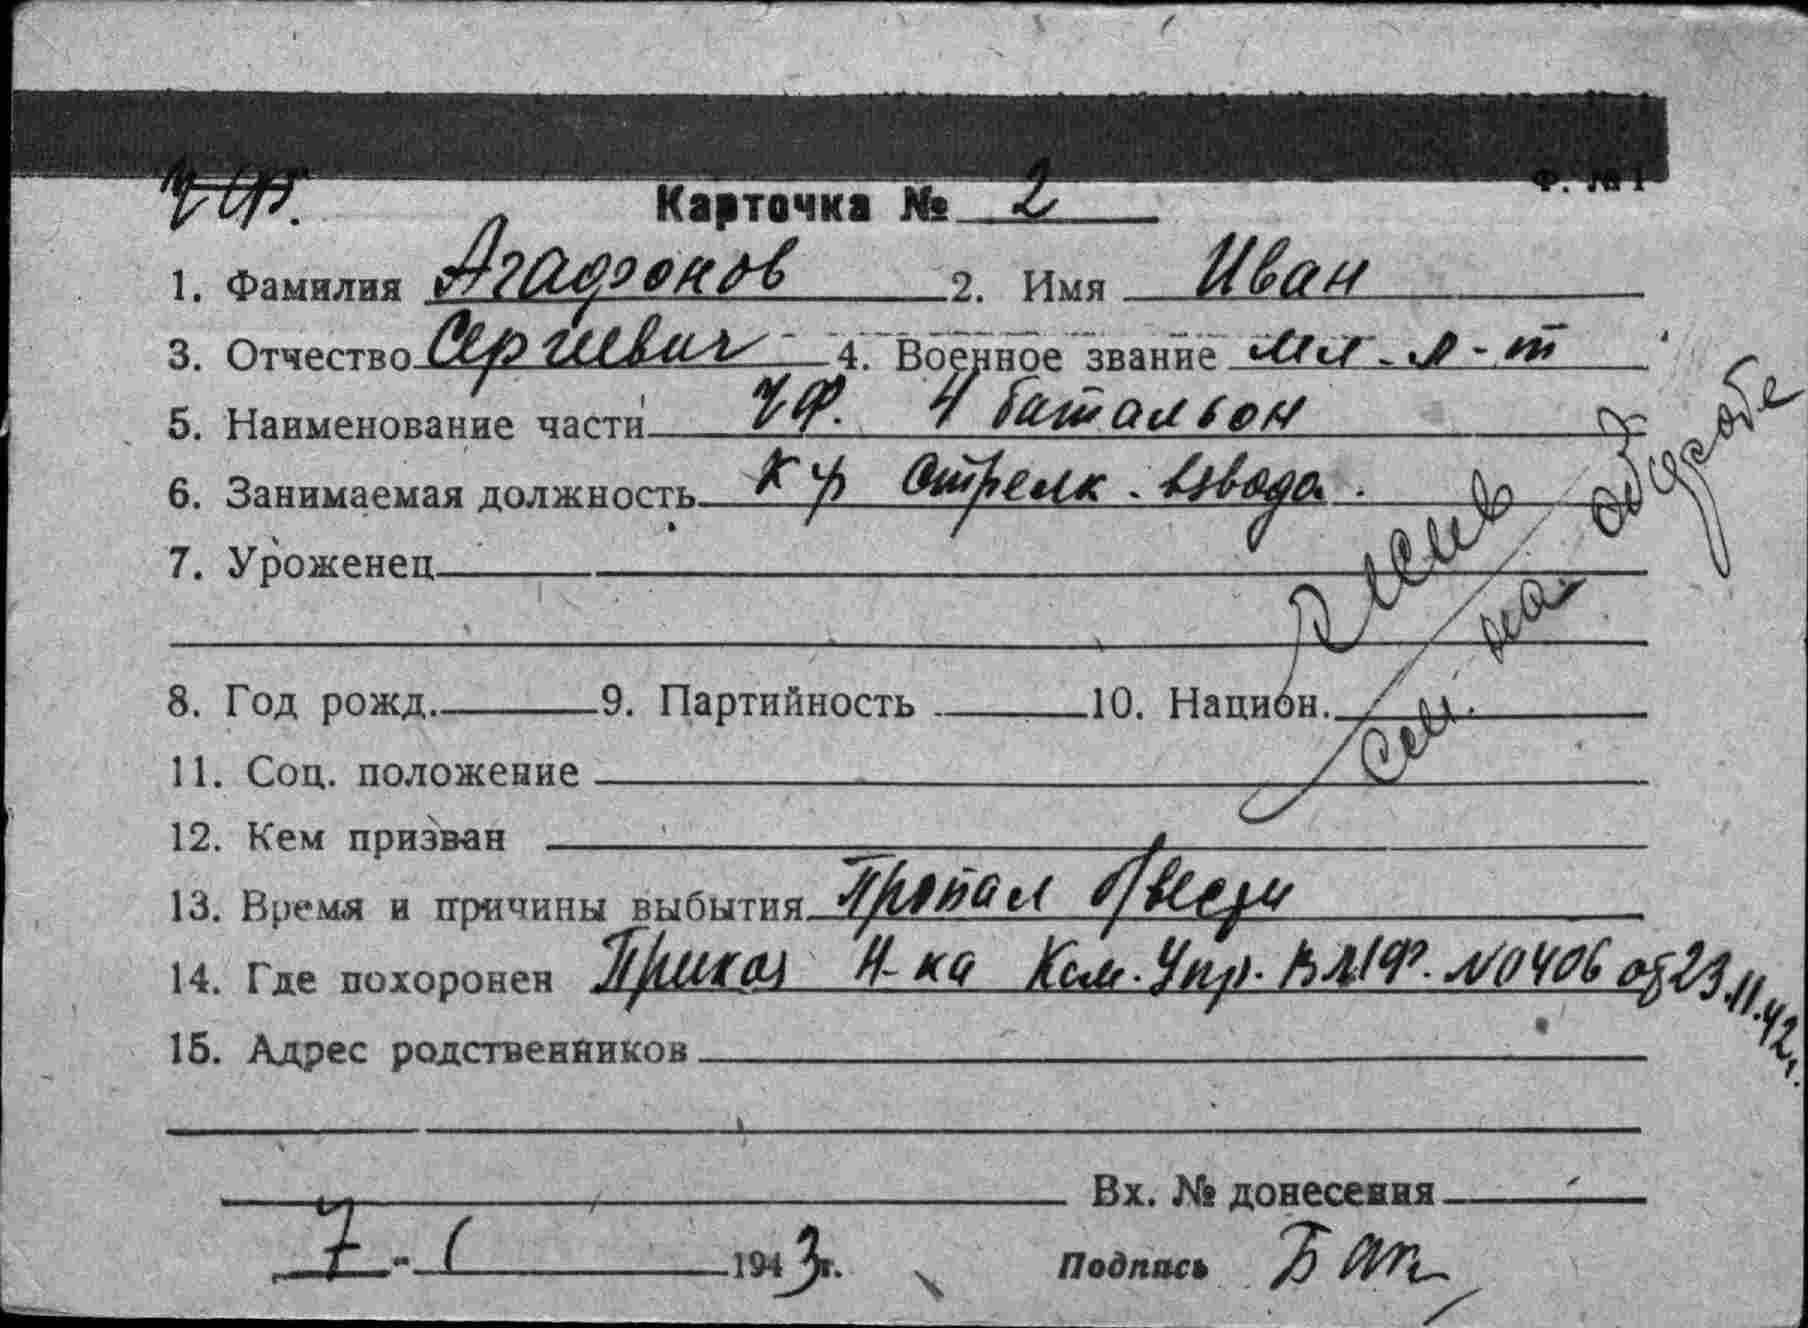 Ф. № 1
ЧФ.
Карточка № 2
1. Фамилия Агафонов 2. Имя Иван
3. Отчество Сергиевич 4. Военное звание Мл. л-т
5. Наименование части ЧФ. 4 батальон
6. Занимаемая должность К-р Стрелк. взвода.
7. Уроженец
8. Год рожд. 9. Партийность 10. Национ.
11. Соц. положение
12. Кем призван
13. Время и причины выбытия Пропал б/вести
14. Где похоронен Приказ Н-ка Ком. Упр. ВМФ. № 0406 от 23.11.42.
15. Адрес родственников
Вх. № донесения
7 - 1 1943г. Подпись
См. на обороте